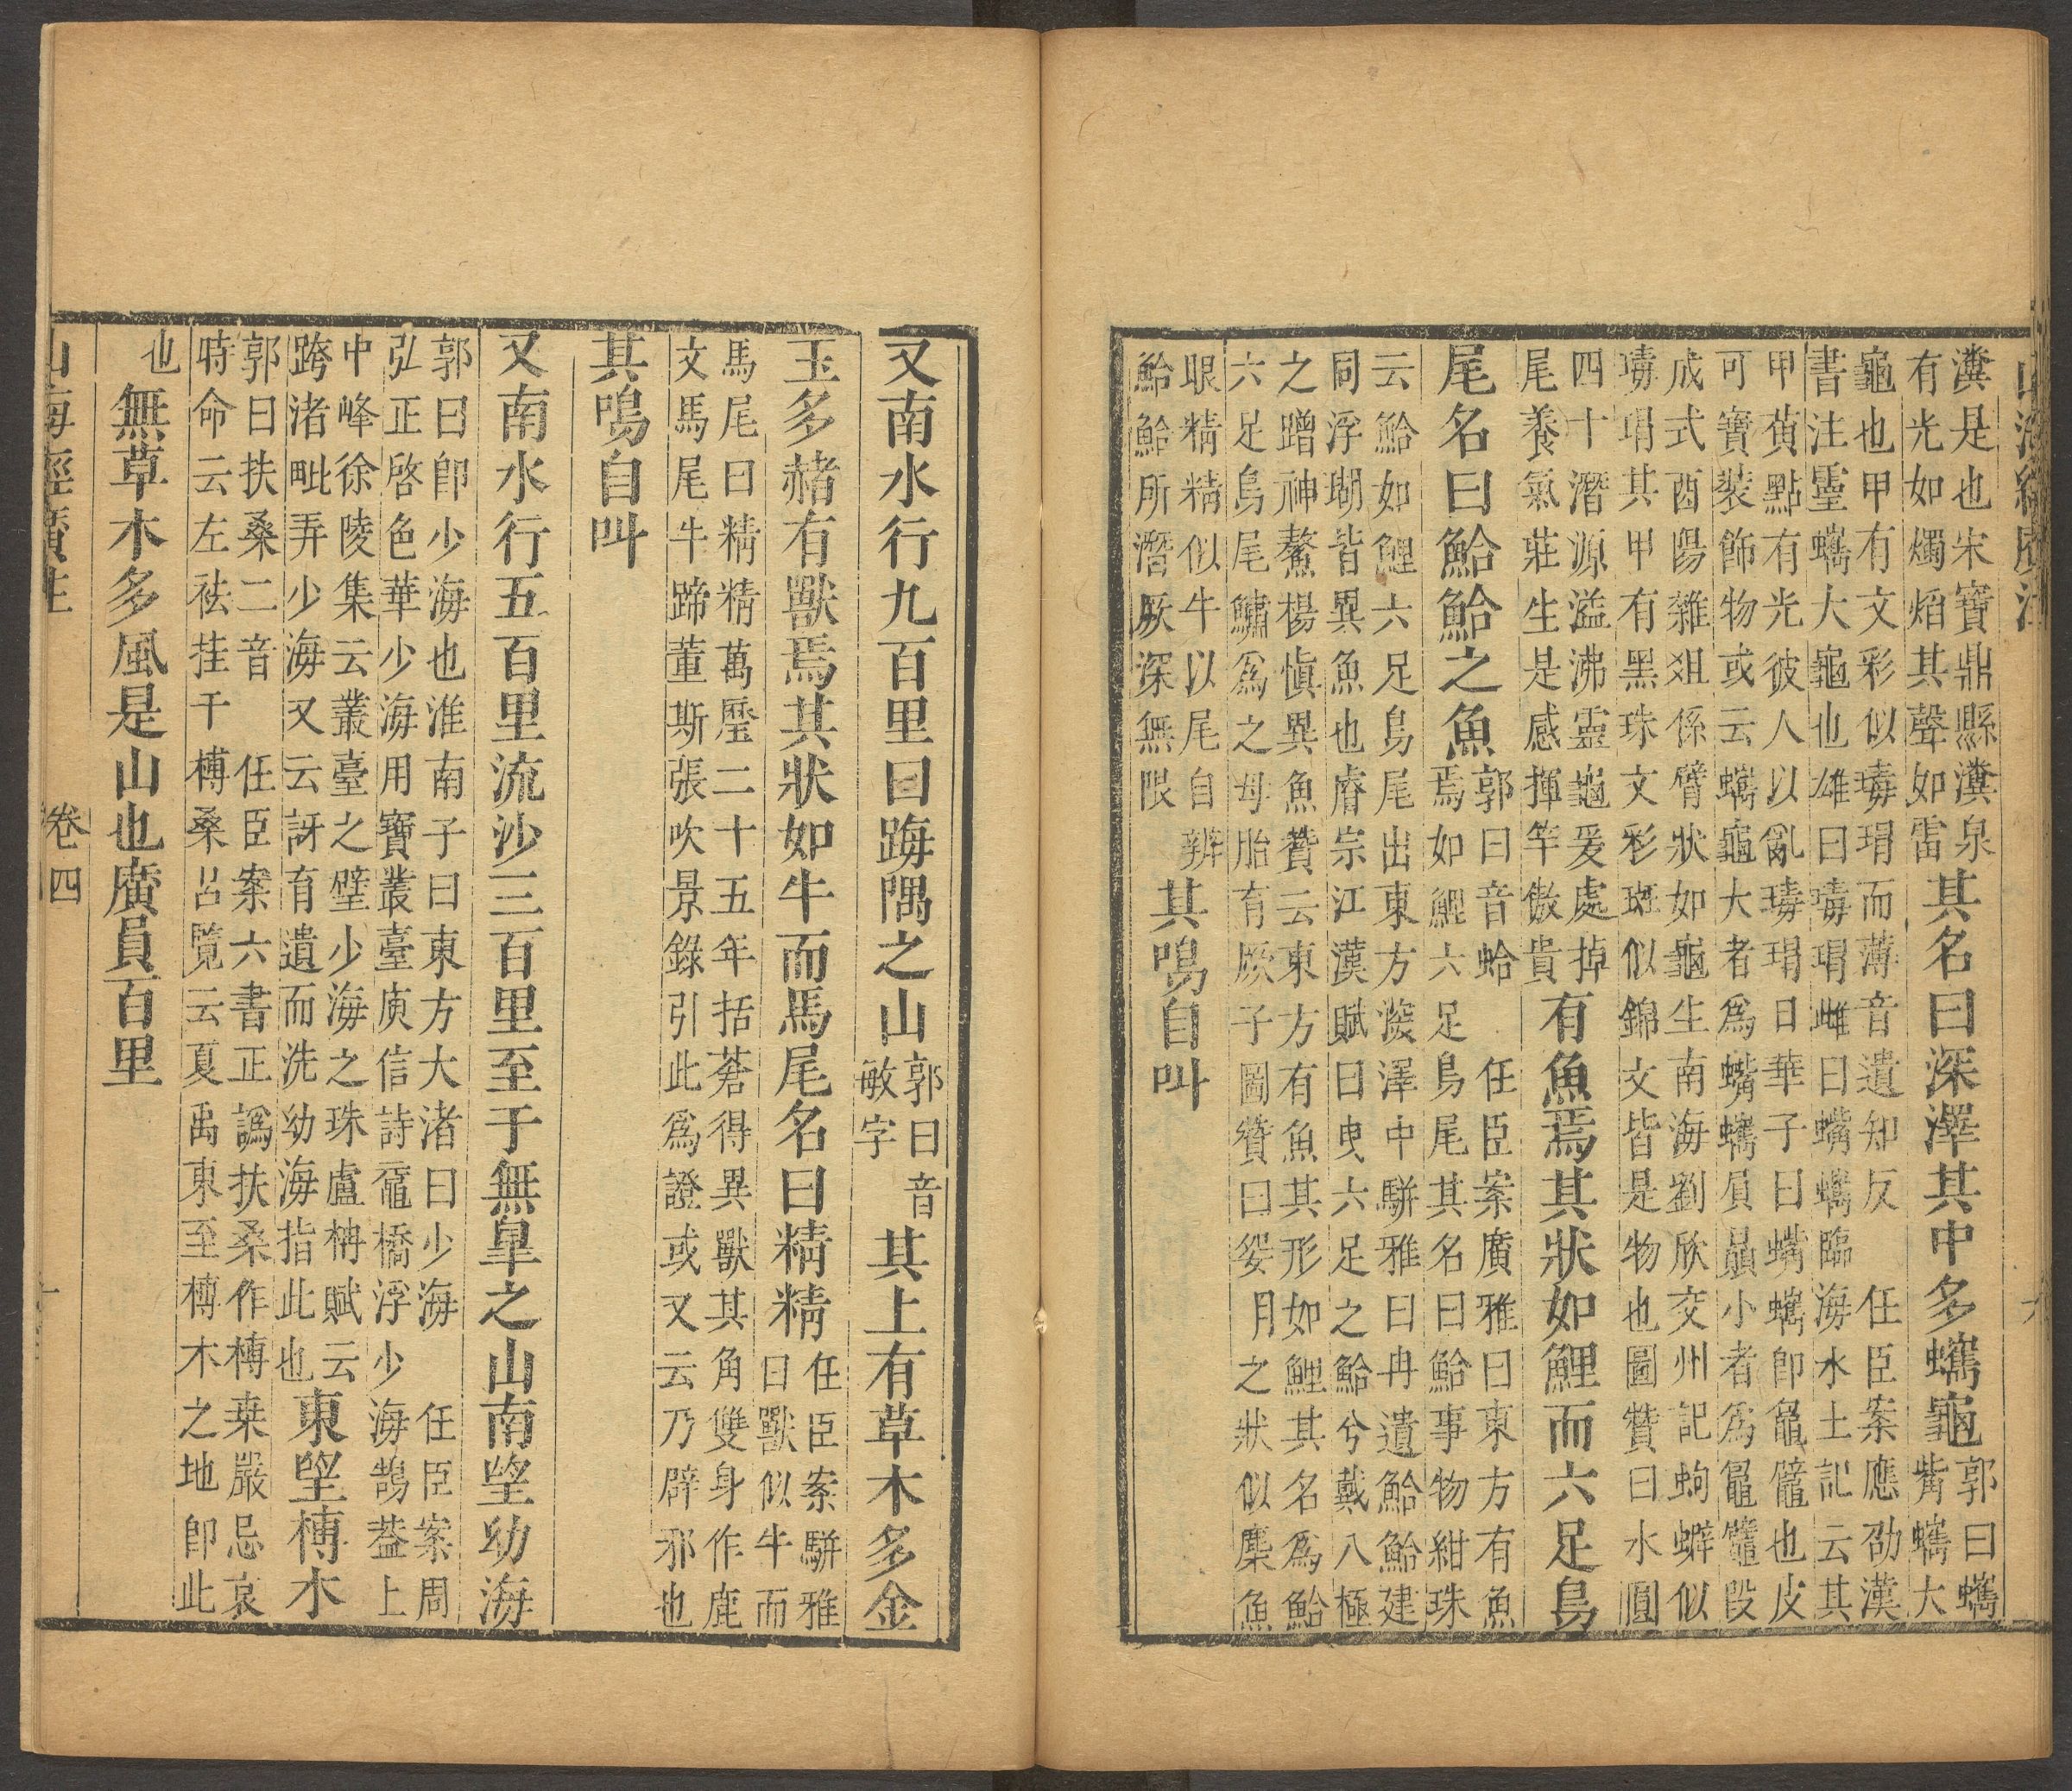 瀵是也宋寶鼎縣瀵泉
有光如燭熖其聲如雷
其名曰深澤其中多蠵龜
郭曰蠵
觜蠵大
龜也甲有文彩似瑇瑁而薄音遺知反　任臣案應劭漢
書注靈蠵大龜也雄曰瑇瑁雌曰蟕蠵臨海水土記云其
甲黄點有光彼人以亂瑇瑁日華子曰蟕蠵卽鼂鼊也皮
可寶裝飾物或云蠵龜大者爲蟕蠵屓贔小者爲鼂鼊段
成式酉陽雜俎係臂狀如龜生南海劉欣交州記蚼蠏似
瑇瑁其甲有黑珠文彩斑似錦文皆是物也圖贊曰水圓
四十潛源溢沸靈龜爰處掉
尾養氣莊生是感揮竿傲貴
有魚焉其狀如鯉而六足鳥
尾名曰鮯鮯之魚
郭曰音蛤　任臣案廣雅曰東方有魚
焉如鯉六足鳥尾其名曰鮯事物紺珠
云鮯如鯉六足鳥尾出東方漇澤中駢雅曰冉遺鮯鮯建
同浮瑚皆異魚也睿宗江漢賦曰曳六足之鮯兮戴八極
之蹭神鰲楊愼異魚贊云東方有魚其形如鯉其名爲鮯
六足鳥尾鱐爲之母胎有厥子圖贊曰妴月之狀似麋魚
眼精精似牛以尾自辨
鮯鮯所潛厥深無限
其鳴自叫
又南水行九百里曰踇隅之山
郭曰音
敏字
其上有草木多金
玉多赭有獸焉其狀如牛而馬尾名曰精精
任臣案駢雅
曰獸似牛而
馬尾曰精精萬曆二十五年括蒼得異獸其角雙身作鹿
文馬尾牛蹄董斯張吹景錄引此爲證或又云乃辟邪也
其鳴自叫
又南水行五百里流沙三百里至于無臯之山南望幼海
郭曰卽少海也淮南子曰東方大渚曰少海　任臣案周
弘正啓色華少海用寶叢臺庾信詩黿橋浮少海鵠葢上
中峰徐陵集云叢臺之璧少海之珠盧柟賦云
跨渚毗弄少海又云訝有遺而洗幼海指此也
東望榑木
郭曰扶桑二音　任臣案六書正譌扶桑作榑桒嚴忌哀
時命云左袪挂于榑桑呂覽云夏禹東至榑木之地卽此
也
無草木多風是山也廣員百里
山海經廣注
卷四